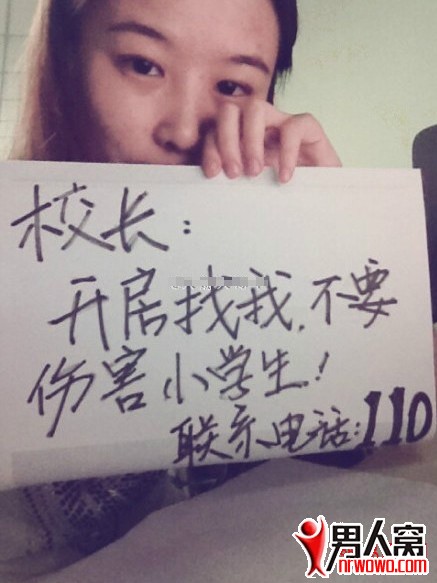 校长:
开居找我,不要
伤害小学生!
联系电话:110
男人窝
nrwowo.com